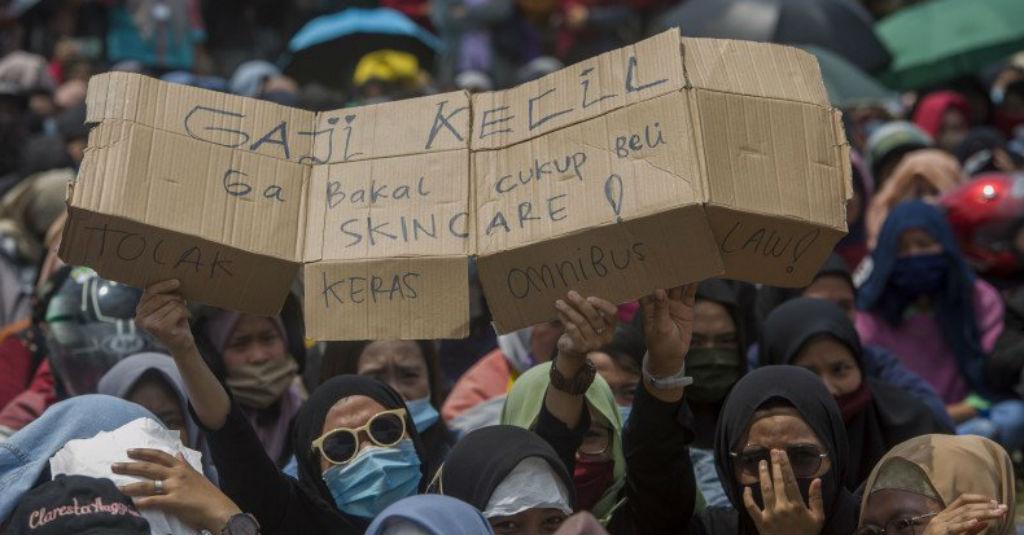 GAJi KECiL
Ga Bakal cukup Beli
SKINCARE !
TOLAK KERAS OmniBUS LAW!